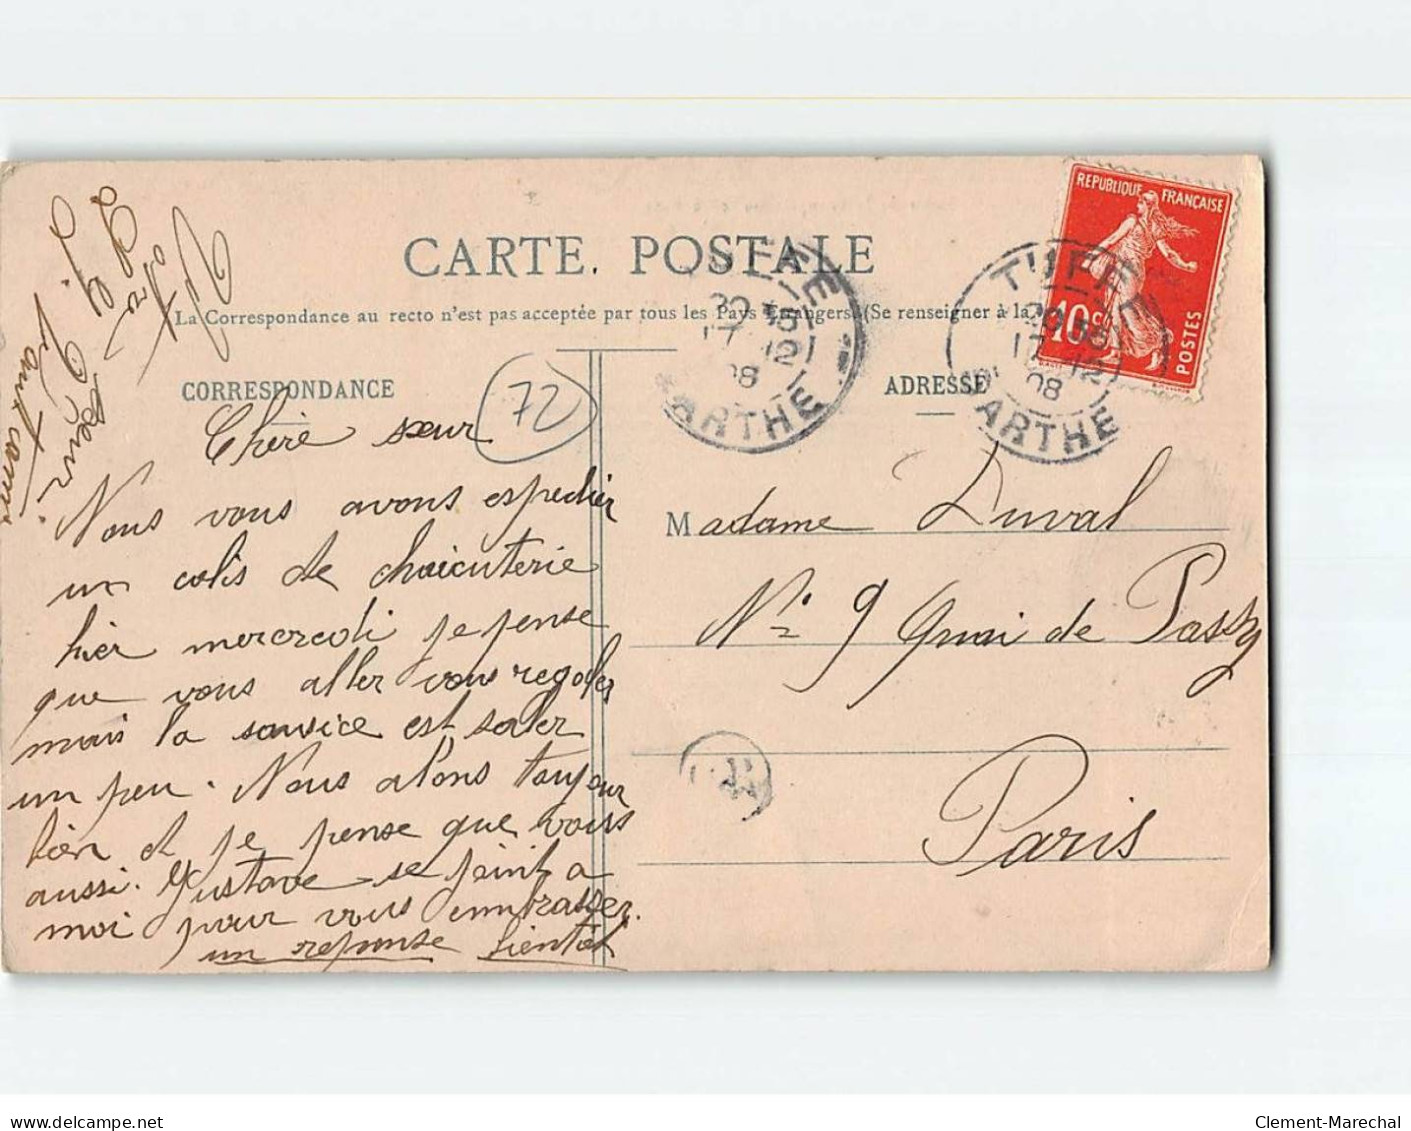 CARTE POSTALE
La Correspondance au recto n'est pas acceptée par tous les Pays Etrangers (Se renseigner à la
CORRESPONDANCE
ADRESSE
72
REPUBLIQUE FRANÇAISE
10c
POSTES
TUFFE
20 35
17 12
08
SARTHE
TUFFE
20 35
17 12
08
SARTHE
Chère sœur
Nous vous avons espedier
un colis de chaicuterie
hier mercredi je pense
que vous aller vous regaler
mais la sausice est saler
un peu. Nous alons toujour
bien et je pense que vous
aussi. Gustave se joint a
moi pour vous embrasser.
un reponse bientôt
Madame Duval
N° 9 Quai de Passy
Paris
Clement-Marechal